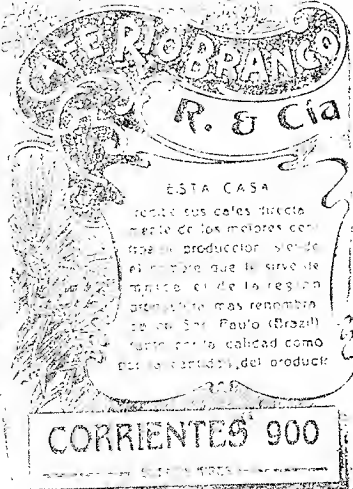 CAFE RIO BRANCO
R. & Cía
ESTA CASA
recibe sus cafes directa
mente de los mejores cen
tros de producción siendo
el nombre que le sirve de
marca el de la region
mas renombra
da en San Paulo (Brazil)
tanto por la calidad como
por la cantidad del product
CORRIENTES 900